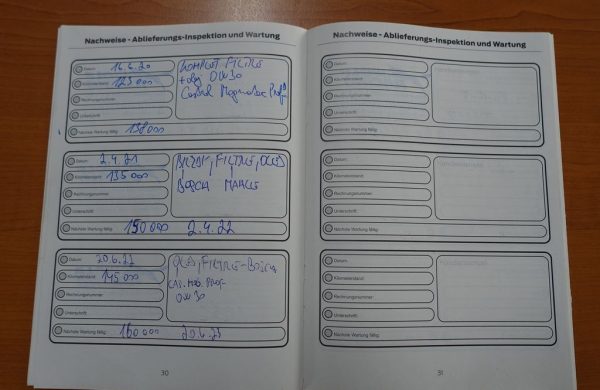 Nachweise - Ablieferungs-Inspektion und Wartung
Datum 16.6.20
Kilometerstand 123 000
Rechnungsnummer
Unterschrift
Nächste Wartung fällig 138000
KOMPLET FILTRE
0W30
Castrol Magnatec Prof
Datum 2.4.21
Kilometerstand 135 000
Rechnungsnummer
Unterschrift
Nächste Wartung fällig 150 000 2.4.22
FILTRE, OLEJ
BOSCH MAHLE
Datum 20.6.22
Kilometerstand 145 000
Rechnungsnummer
Unterschrift
Nächste Wartung fällig 160 000 20.6.23
OLEJ, FILTRE-BOSCH
CAS. MAG. PROF
0W30
30
Nachweise - Ablieferungs-Inspektion und Wartung
Datum
Kilometerstand
Rechnungsnummer
Unterschrift
Nächste Wartung fällig
Datum
Kilometerstand
Rechnungsnummer
Unterschrift
Nächste Wartung fällig
Datum
Kilometerstand
Rechnungsnummer
Unterschrift
Nächste Wartung fällig
31